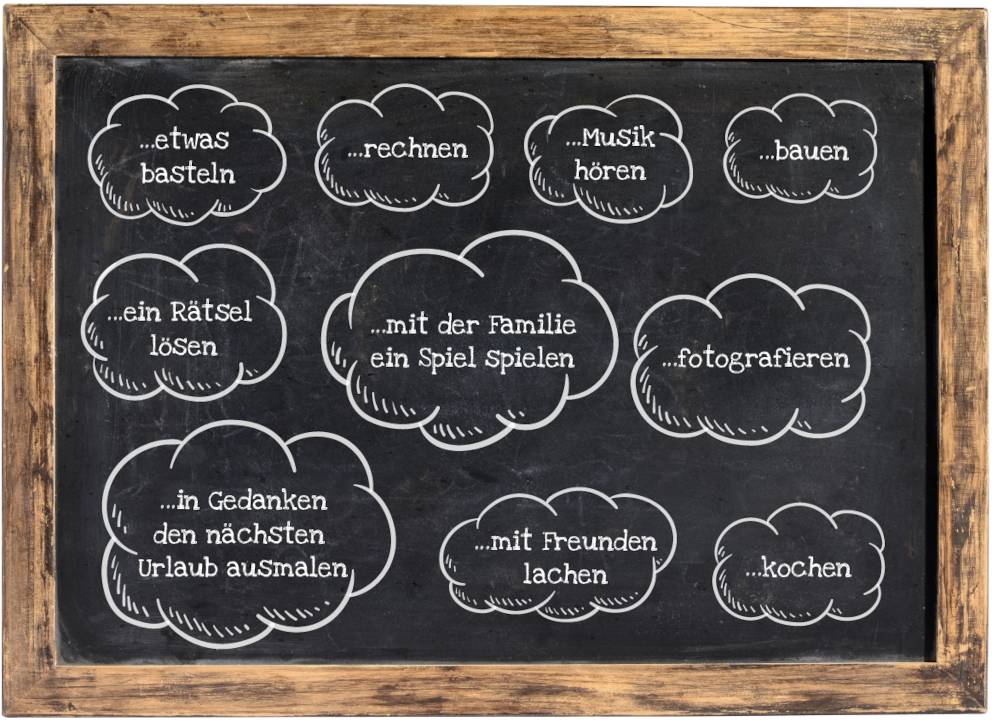 ...etwas
basteln
...rechnen
...Musik
hören
...bauen
...ein Rätsel
lösen
...mit der Familie
ein Spiel spielen
...fotografieren
...in Gedanken
den nächsten
Urlaub ausmalen
...mit Freunden
lachen
...kochen